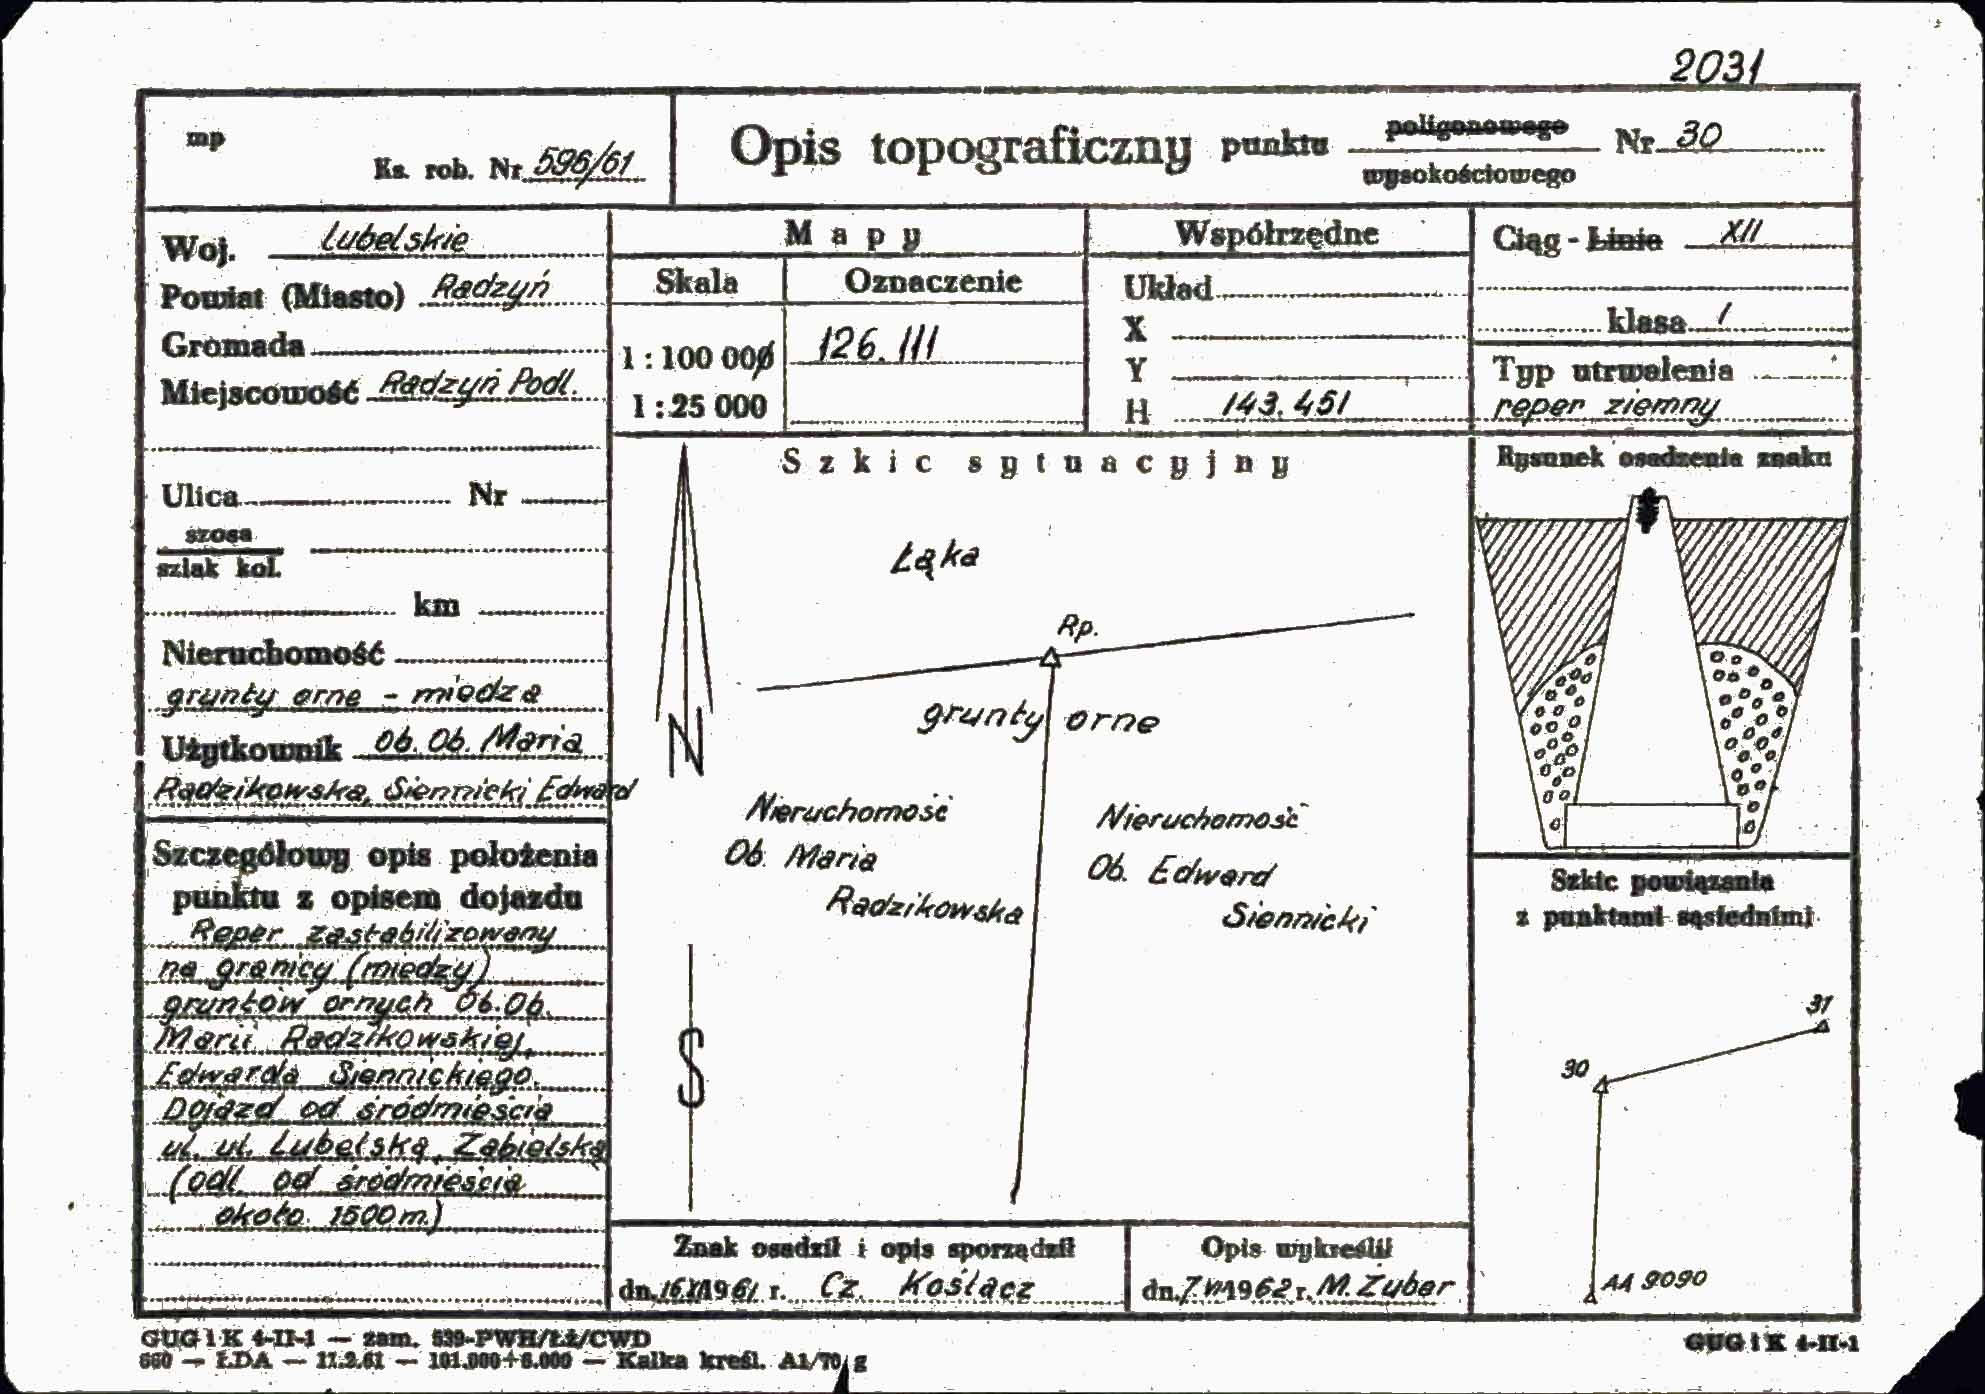 2031
mp
Ks. rob. Nr 596/61
Opis topograficzny punktu poligonowego
wysokościowego
Nr 30
Woj. Lubelskie
Powiat (Miasto) Radzyń
Gromada
Miejscowość Radzyń Podl.
Ulica Nr
szosa
szlak kol.
km
Nieruchomość
grunty orne - miedza
Użytkownik Ob. Ob. Maria
Radzikowska, Siennicki Edward
Szczegółowy opis położenia
punktu z opisem dojazdu
Reper zastabilizowany
na granicy (miedzy)
gruntów ornych Ob. Ob.
Marii Radzikowskiej,
Edwarda Siennickiego.
Dojazd od śródmieścia
ul. ul. Lubelską, Zabielską
(odl. od śródmieścia
około 1500 m.)
Mapy
Skala Oznaczenie
1 : 100 000 126. III
1 : 25 000
Współrzędne
Układ
X
Y
H 143.451
Ciąg - Linia XII
klasa I
Typ utrwalenia
reper ziemny
Szkic sytuacyjny
Łąka
Rp.
grunty orne
Nieruchomość
Ob. Maria
Radzikowska
Nieruchomość
Ob. Edward
Siennicki
N
S
Rysunek osadzenia znaku
Szkic powiązania
z punktami sąsiednimi
31
30
AA 9090
Znak osadził i opis sporządził
dn. 16.XI 1961 r. Cz. Koślacz
Opis wykreślił
dn. 7.VI 1962 r. M. Zuber
GUGiK 4-II-1 — zam. 539-PWH/ŁŻ/CWD
660 — ŁDA — 11.2.61 — 101.000+6.000 — Kalka kreśl. A1/70 g
GUGiK 4-II-1